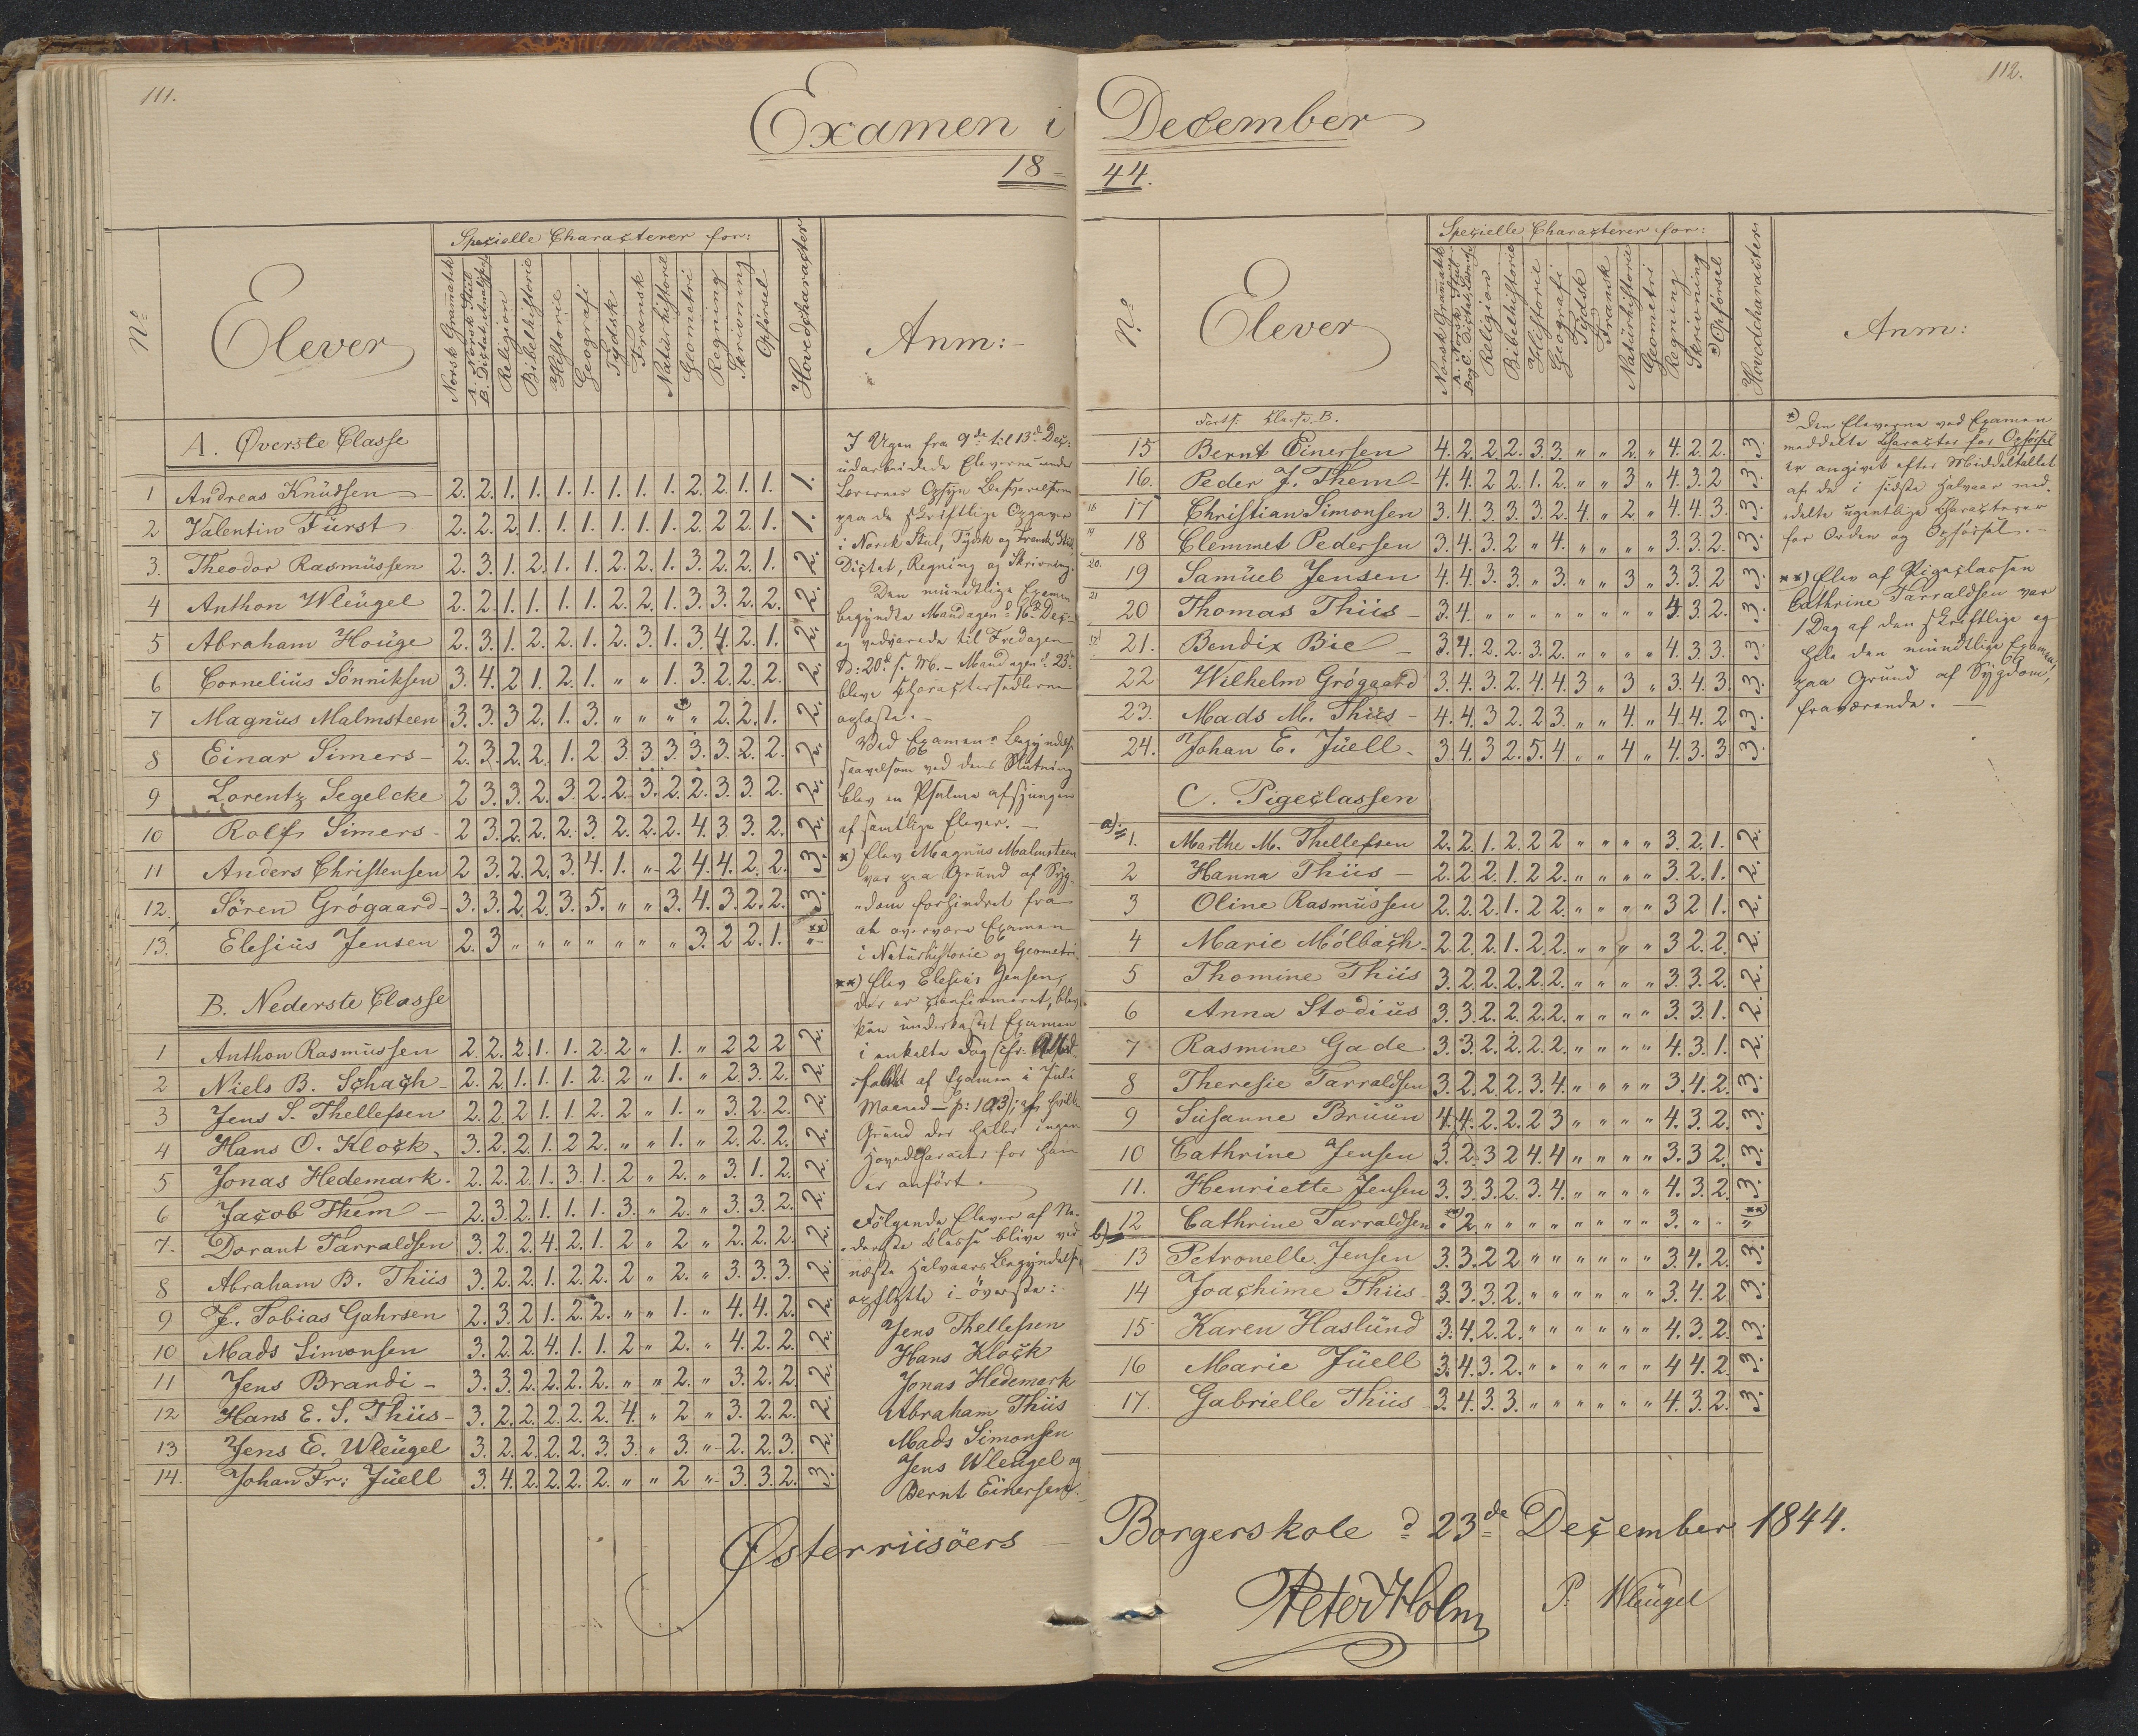 111.
Examen i
18-
Specielle Characterer for:
No
Elever
Norsk Gramatik
A. Norsk Stiil
B. Dictat, Analyse
Religion
Bibelhistorie
Historie
Geografi
Tydsk
Fransk
Naturhistorie
Geometri
Regning
Skrivning
Opførsel
Hovedcharacter
Anm:-
A. Øverste Classe
1 Andreas Knudsen 2. 2. 1. 1. 1. 1. 1. 1. 1. 2. 2. 1. 1. 1.
2 Valentin Fürst 2. 2. 2. 1. 1. 1. 1. 1. 1. 2. 2. 2. 1. 1.
3. Theodor Rasmussen 2. 3. 1. 2. 1. 1. 2. 2. 1. 3. 2. 2. 1. 2.
4 Anthon Wleugel 2. 2. 1. 1. 1. 1. 2. 2. 1. 3. 3. 2. 2. 2.
5 Abraham Houge 2. 3. 1. 2. 2. 1. 2. 3. 1. 3. 4. 2. 1. 2.
6 Cornelius Sønniksen 3. 4. 2 1. 2. 1. " " 1. 3. 2. 2. 2. 2.
7 Magnus Malmsteen 3. 3. 3 2. 1. 3. " " " *" 2. 2. 1. 2.
8 Einar Simers - 2. 3. 2. 2. 1. 2 3. 3. 3. 3. 3. 2. 2. 2.
9 Lorentz Segelcke 2 3. 3. 2. 3. 2. 2. 3. 2. 2. 3. 3. 2. 2.
10 Rolf Simers - 2 3. 2. 2. 2. 3. 2. 2. 2. 4. 3. 3. 2. 2.
11 Anders Christensen 2 3. 2. 2. 3. 4. 1. " 2 4. 4. 2. 2. 3.
12. Søren Grøgaard - 3. 3. 2. 2. 3. 5. " " 3. 4. 3. 2. 2. 3.
13. Elesius Jensen 2. 3 " " " " " " " 3. 2 2. 1. **)
B. Nederste Classe
1 Anthon Rasmussen 2. 2. 2. 1. 1. 2. 2 " 1. " 2 2 2 2.
2 Niels B. Schach 2. 2. 1. 1. 1. 2. 2 " 1. " 2. 3. 2. 2.
3 Jens S. Thellefsen 2. 2. 2 1. 1. 2. 2 " 1. " 3. 2. 2. 2.
4 Hans O. Klock 3. 2. 2. 1. 2 2. " " 1. " 2. 2. 2. 2.
5 Jonas Hedemark. 2. 2. 2. 1. 3. 1. 2 " 2. " 3. 1. 2. 2.
6 Jacob Them - 2. 3. 2. 1. 1. 1. 3. " 2. " 3. 3. 2. 2.
7. Dorant Tarraldsen 3. 2. 2. 4. 2. 1. 2 " 2 " 2. 2. 2. 2.
8 Abraham B. Thiis 3. 2. 2. 1. 2. 2. 2 " 2. " 3. 3. 3. 2.
9 J. Tobias Gahrsen 2. 3. 2. 1. 2. 2. " " 1. " 4. 4. 2. 2.
10 Mads Simonsen 3. 2. 2. 4. 1. 1. 2 " 2. " 4. 2. 2. 2.
11 Jens Brandi - 3. 3. 2. 2. 2. 2. " " 2. " 3. 2. 2. 2.
12 Hans E. S. Thiis - 3. 2. 2. 2. 2. 2. 4. " 2 " 3. 2 2. 2.
13 Jens E. Wleugel 3. 2. 2. 2. 2. 3. 3. " 3. " 2. 2. 3. 2.
14. Johan Fr: Juell 3. 4. 2. 2. 2. 2. " " 2 " 3. 3. 2. 3.
I Ugen fra 9de til 13d Dec:
udarbeidede Eleverne under
Lærernes Opsyn Besvarelserne
paa de skriftlige Opgaver
i Norsk Stiil, Tydsk og Fransk Stiil
Dictat, Regning og Skrivning.
Den mundtlige Examen
begyndte Mandagen d. 16de Dec:
og vedvarede til Fredagen
D: 20d s. M. - Mandagen d. 23d
bleve Characteersedlerne
oplæste. -
Ved Examens Begyndelse
saavelsom ved dens Slutning
blev en Psalme afsjungen
af samtlige Elever. -
*) Elev Magnus Malmsteen
var paa Grund af Syg-
dom forhindret fra
at overvære Examen
i Naturhistorie og Geometri.
**) Elev Elesius Jensen,
der er confirmeret, blev
kun underkastet Examen
i enkelte Fag
af Examen i Juli
Maaned - p: 103); af hvilken
Grund der heller ingen
Hovedcharacter for ham
er anført.
Følgende Elever af Ne-
derste Classe blive ved
næste Halvaars Begyndelse
opflytte i øverste:
Jens Thellefsen
Hans Klock
Jonas Hedemark
Abraham Thiis
Mads Simonsen
Jens Wleugel og
Bernt Einersen.
Østerriisöers
112.
December
44.
Specielle Characterer for:
No
Elever
Norsk Gramatik
A. Norsk Stiil
B og C. Dictat, Læsning
Religion
Bibelhistorie
Historie
Geografi
Tydsk
Fransk
Naturhistorie
Geometri
Regning
Skrivning
*) Opførsel
Hovedcharacteer
Anm:
Forts. Classe B.
15 Bernt Einersen 4. 2. 2. 2. 3. 3. " " 2. " 4. 2. 2. 3.
16. Peder J. Them 4. 4. 2 2. 1. 2. " " 3 " 4. 3. 2 3.
18 17 Christian Simonsen 3. 4. 3. 3. 3. 2. 4. " 2. " 4. 4. 3. 3.
19 18 Clemmet Pedersen 3. 4. 3. 2 " 4. " " " " 3. 3. 2. 3.
20. 19 Samuel Jensen 4. 4. 3. 3. " 3. " " 3 " 3. 3. 2 3.
21 20 Thomas Thiis - 3. 4 " " " " " " " " 4. 3. 2. 3.
17 21. Bendix Bie - 3. 4. 2. 2. 3. 2. " " " " 4. 3. 3. 3.
22. Wilhelm Grøgaard 3. 4. 3. 2. 4. 4. 3 " 3 " 3. 4. 3. 3.
23. Mads M. Thiis - 4. 4. 3 2. 2 3. " " 4. " 4. 4. 2 3.
24. Johan E. Juell. 3. 4. 3 2. 5. 4. " " 4 " 4. 3. 3. 3.
C. Pigeclassen
a) 1. Marthe M. Thellefsen 2. 2. 1. 2. 2 2 " " " " 3. 2. 1. 2.
2 Hanna Thiis - 2. 2. 2. 1. 2 2. " " " " 3. 2. 1. 2.
3 Oline Rasmussen 2. 2. 2. 1. 2 2. " " " " 3 2 1. 2.
4 Marie Mölbach 2. 2. 2. 1. 2. 2. " " " " 3 2. 2. 2.
5 Thomine Thiis 3. 2. 2. 2. 2. 2. " " " " 3. 3. 2. 2.
6 Anna Stodius 3. 3. 2. 2. 2. 2. " " " " 3. 3. 1. 2.
7 Rasmine Gade 3. 3. 2. 2. 2. 2. " " " " 4. 3. 1. 2.
8 Theresie Tarraldsen 3. 2. 2. 2. 3. 4. " " " " 3. 4. 2. 3.
9 Susanne Bruun 4. 4. 2. 2. 2 3 " " " " 4. 3. 2. 3.
10 Cathrine Jensen 3. 2. 3 2 4. 4 " " " " 3. 3 2. 3.
11. Henriette Jensen 3. 3. 3. 2. 3. 4. " " " " 4. 3. 2. 3.
b) 12 Cathrine Tarraldsen **) " 2. " " " " " " " " 3. " " **)
13 Petronelle Jensen 3. 3. 2 2 " " " " " " 3. 4. 2. 3.
14 Joachime Thiis 3. 3. 3. 2. " " " " " " 3. 4. 2. 3.
15 Karen Haslund 3. 4. 2. 2. " " " " " " 4. 3. 2. 3.
16 Marie Juell 3. 4. 3. 2. " " " " " " 4 4. 2. 3.
17. Gabrielle Thiis 3. 4. 3. 3. " " " " " " 4. 3. 2. 3.
*) Den Eleverne ved Examen
meddelte Character for Opførsel
er angivet efter Middeltallet
af de i sidste Halvaar med-
delte ugentlige Characterer
for Orden og Opførsel. -
**) Elev af Pigeclassen
Cathrine Tarraldsen var
1 Dag af den skriftlige og
hele den mundtlige Examen,
paa Grund af Sygdom,
fraværende. -
Borgerskole d 23de December 1844.
Peter Holm P. Wleugel